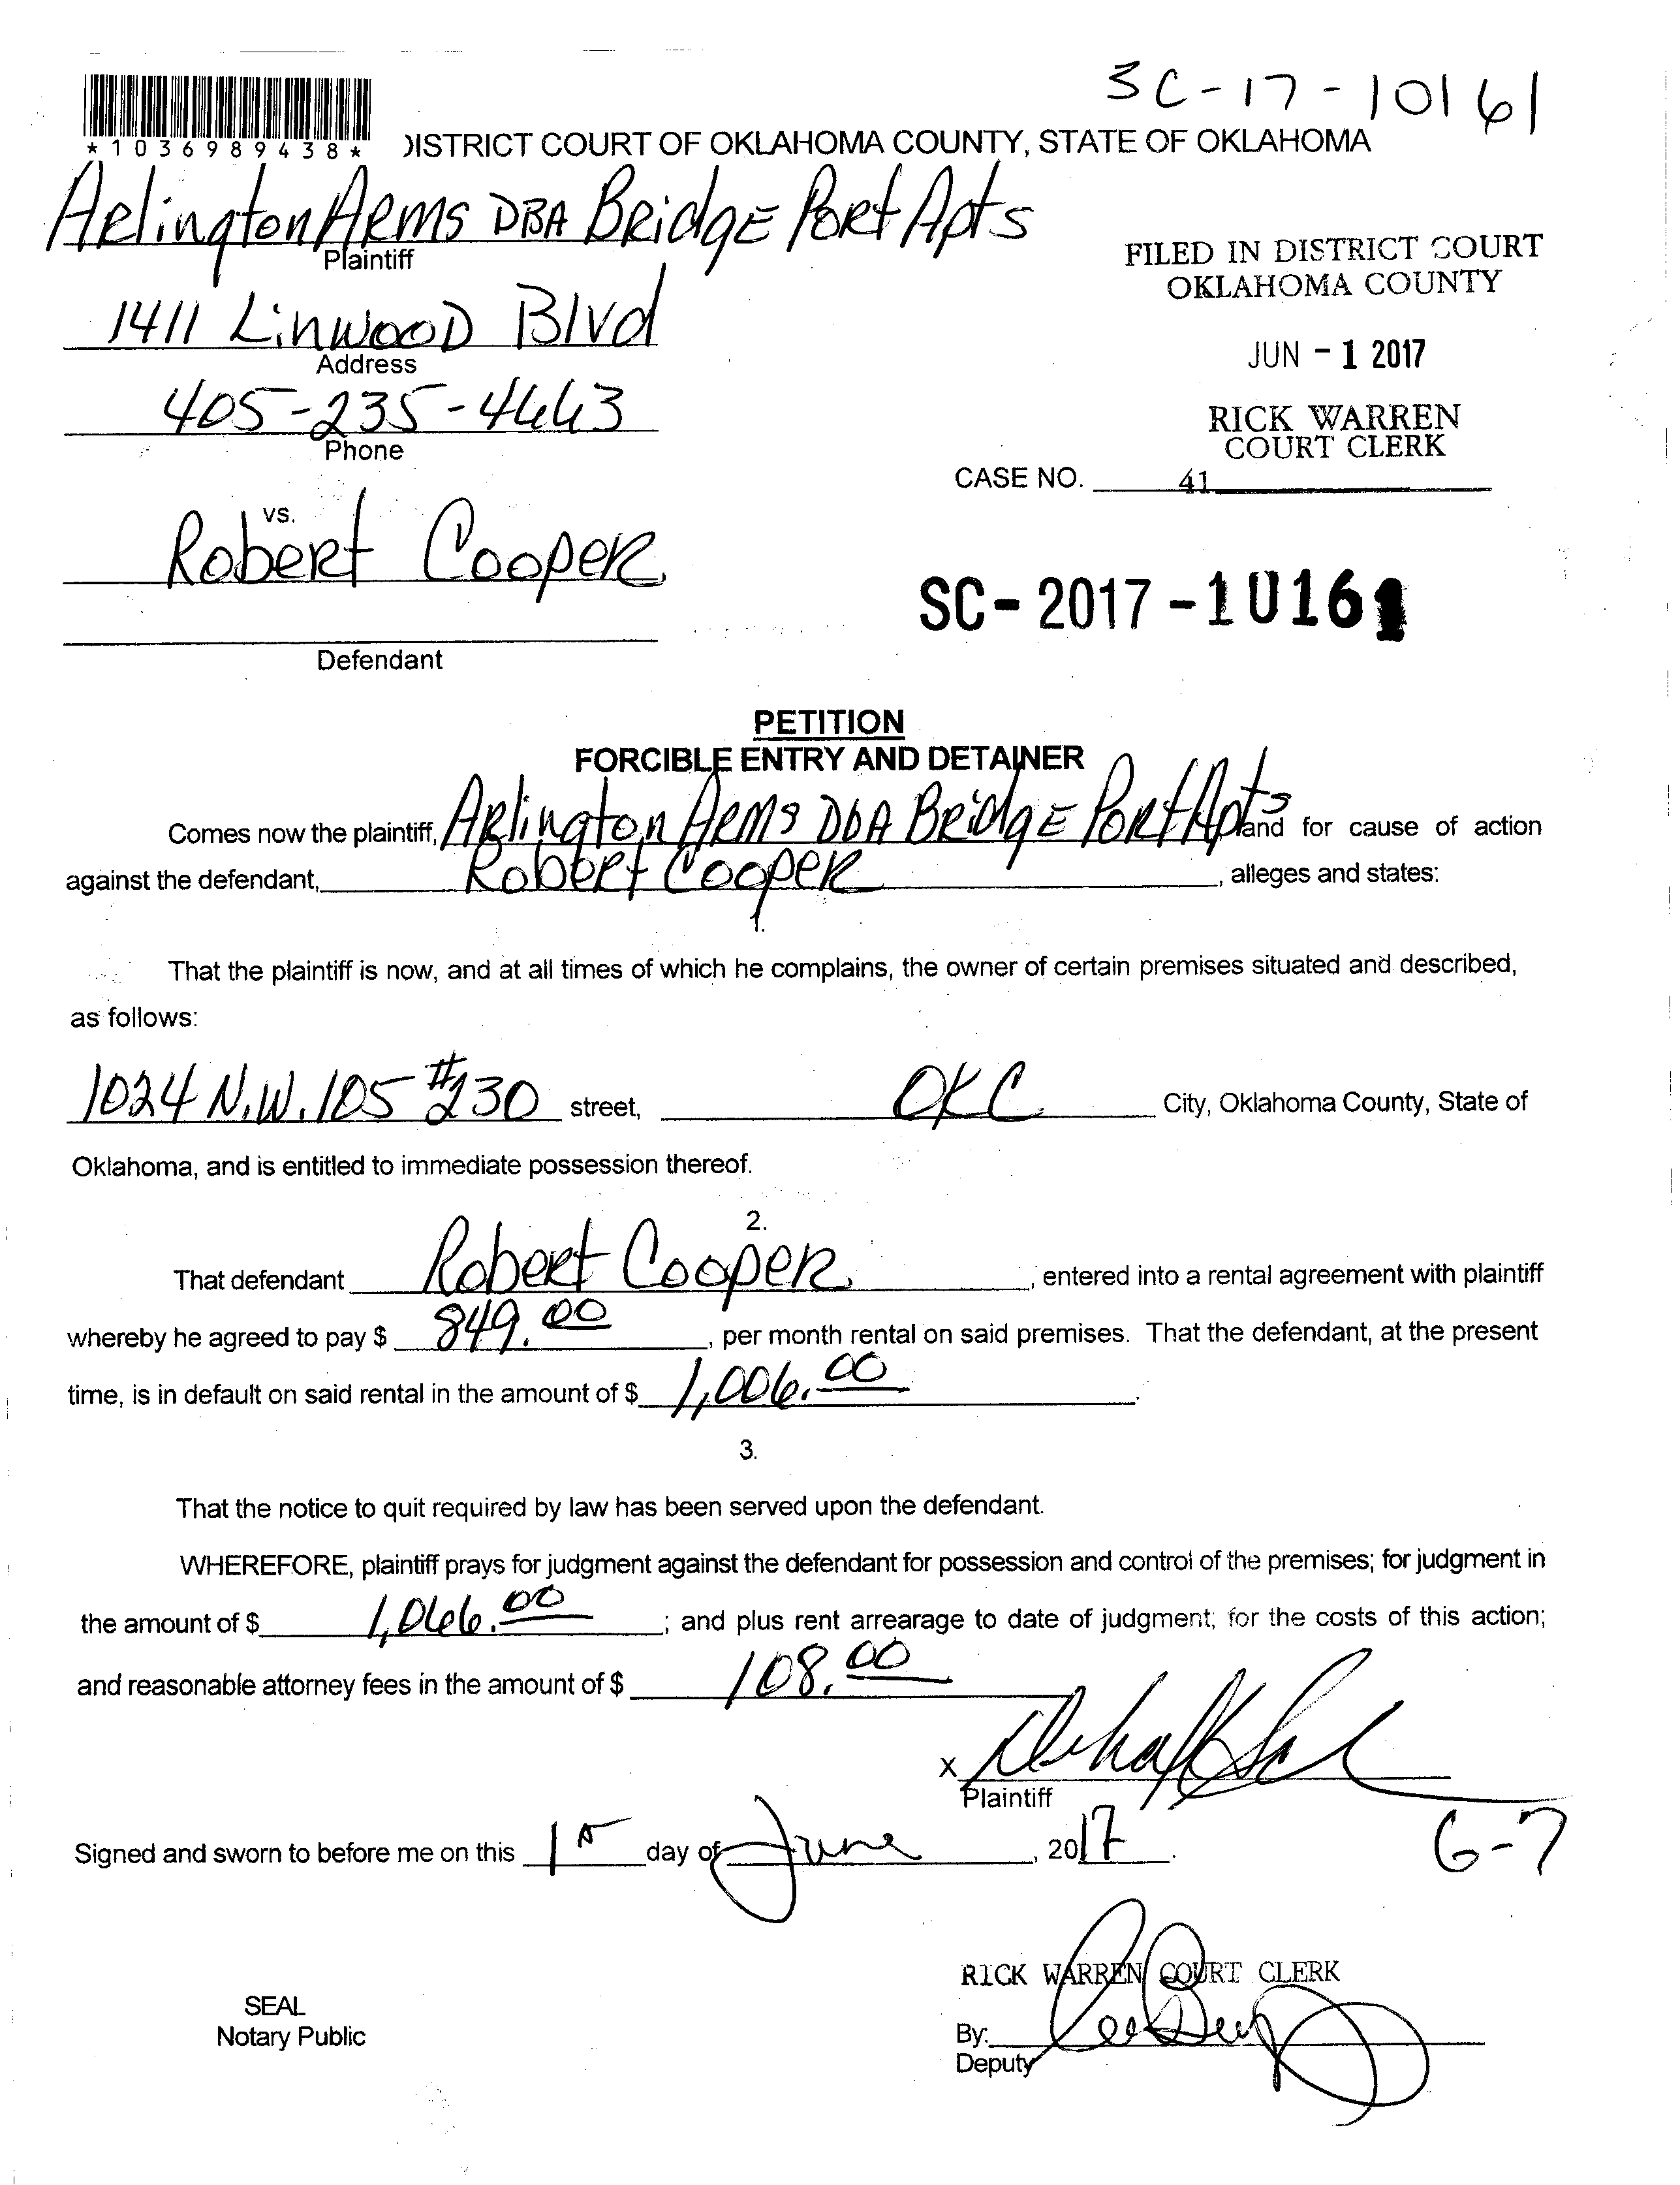 SC-17-10161
*1036989438*
DISTRICT COURT OF OKLAHOMA COUNTY, STATE OF OKLAHOMA
Arlington Arms DBA Bridge Port Apts
Plaintiff
FILED IN DISTRICT COURT
OKLAHOMA COUNTY
1411 Linwood Blvd
Address
JUN - 1 2017
405-235-4443
Phone
RICK WARREN
COURT CLERK
CASE NO. 41
vs.
Robert Cooper
SC- 2017 -10161
Defendant
PETITION
FORCIBLE ENTRY AND DETAINER
Comes now the plaintiff, Arlington Arms DbA Bridge Port Apts and for cause of action
against the defendant, Robert Cooper, alleges and states:
1.
That the plaintiff is now, and at all times of which he complains, the owner of certain premises situated and described,
as follows:
1024 N.W. 105 #230 street, OKC City, Oklahoma County, State of
Oklahoma, and is entitled to immediate possession thereof.
2.
That defendant Robert Cooper, entered into a rental agreement with plaintiff
whereby he agreed to pay $ 849.00, per month rental on said premises. That the defendant, at the present
time, is in default on said rental in the amount of $ 1,006.00.
3.
That the notice to quit required by law has been served upon the defendant.
WHEREFORE, plaintiff prays for judgment against the defendant for possession and control of the premises; for judgment in
the amount of $ ; and plus rent arrearage to date of judgment; for the costs of this action;
and reasonable attorney fees in the amount of $ 108.00
X
Plaintiff
Signed and sworn to before me on this 1st day of June, 2017.
6-7
RICK WARREN COURT CLERK
SEAL
Notary Public
By:
Deputy